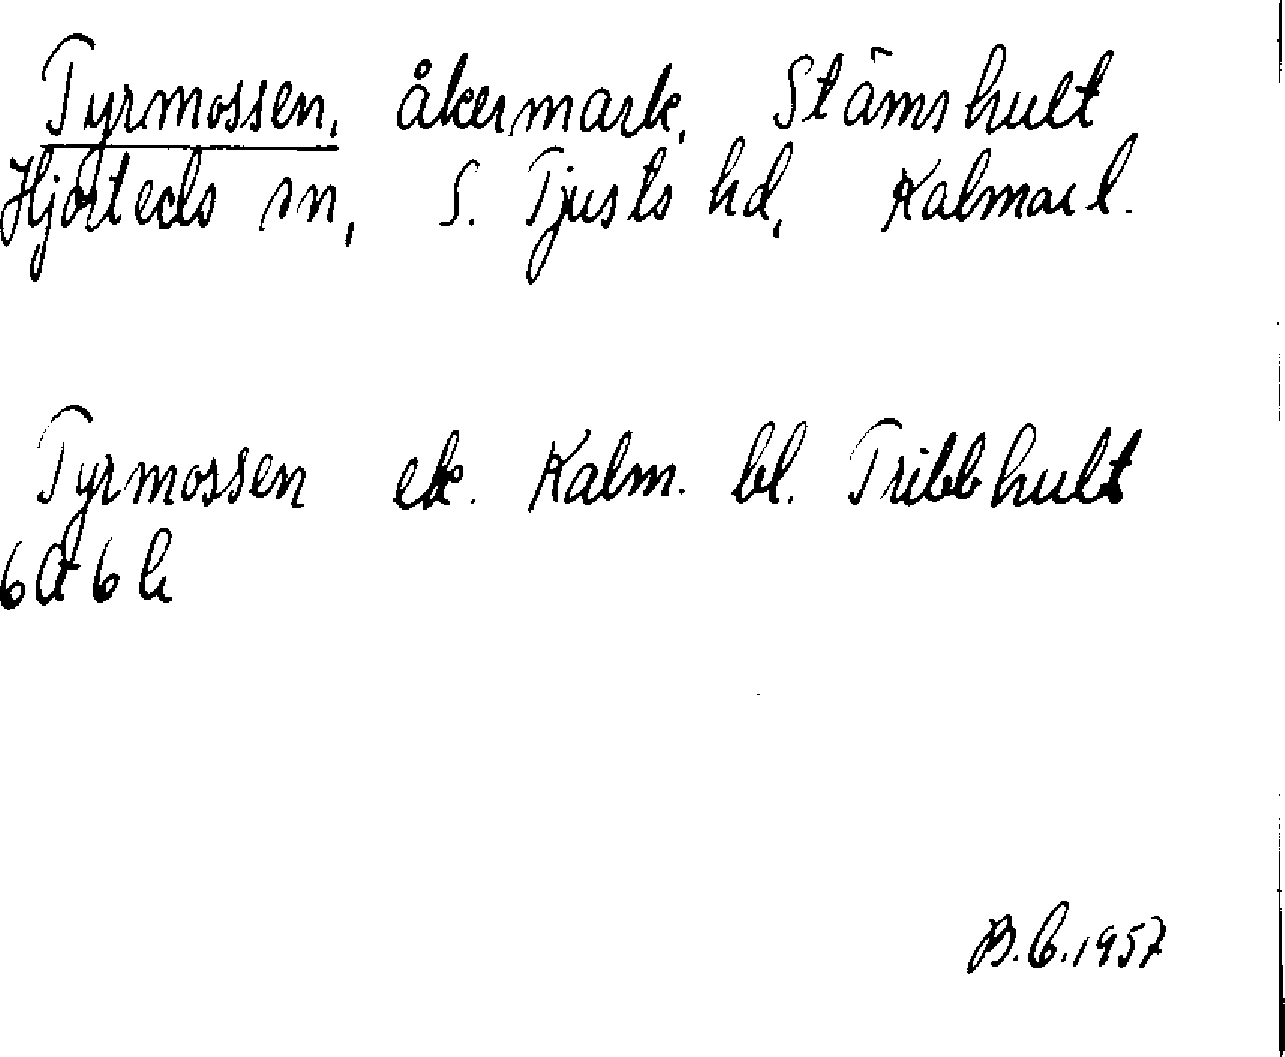 Tyrmossen, åkermark, Stämshult
Hjorteds sn, S. Tjusts hd, Kalmar l.
Tyrmossen ek. Kalm. bl. Tribbhult
6a6h
B.C. 1957